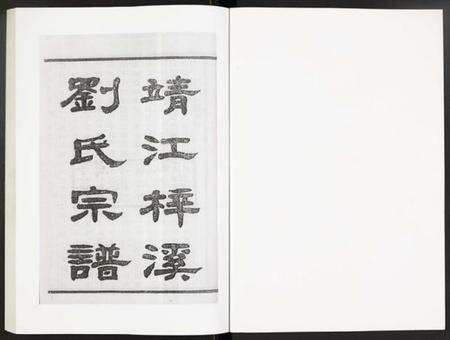 靖江梓溪
劉氏宗譜